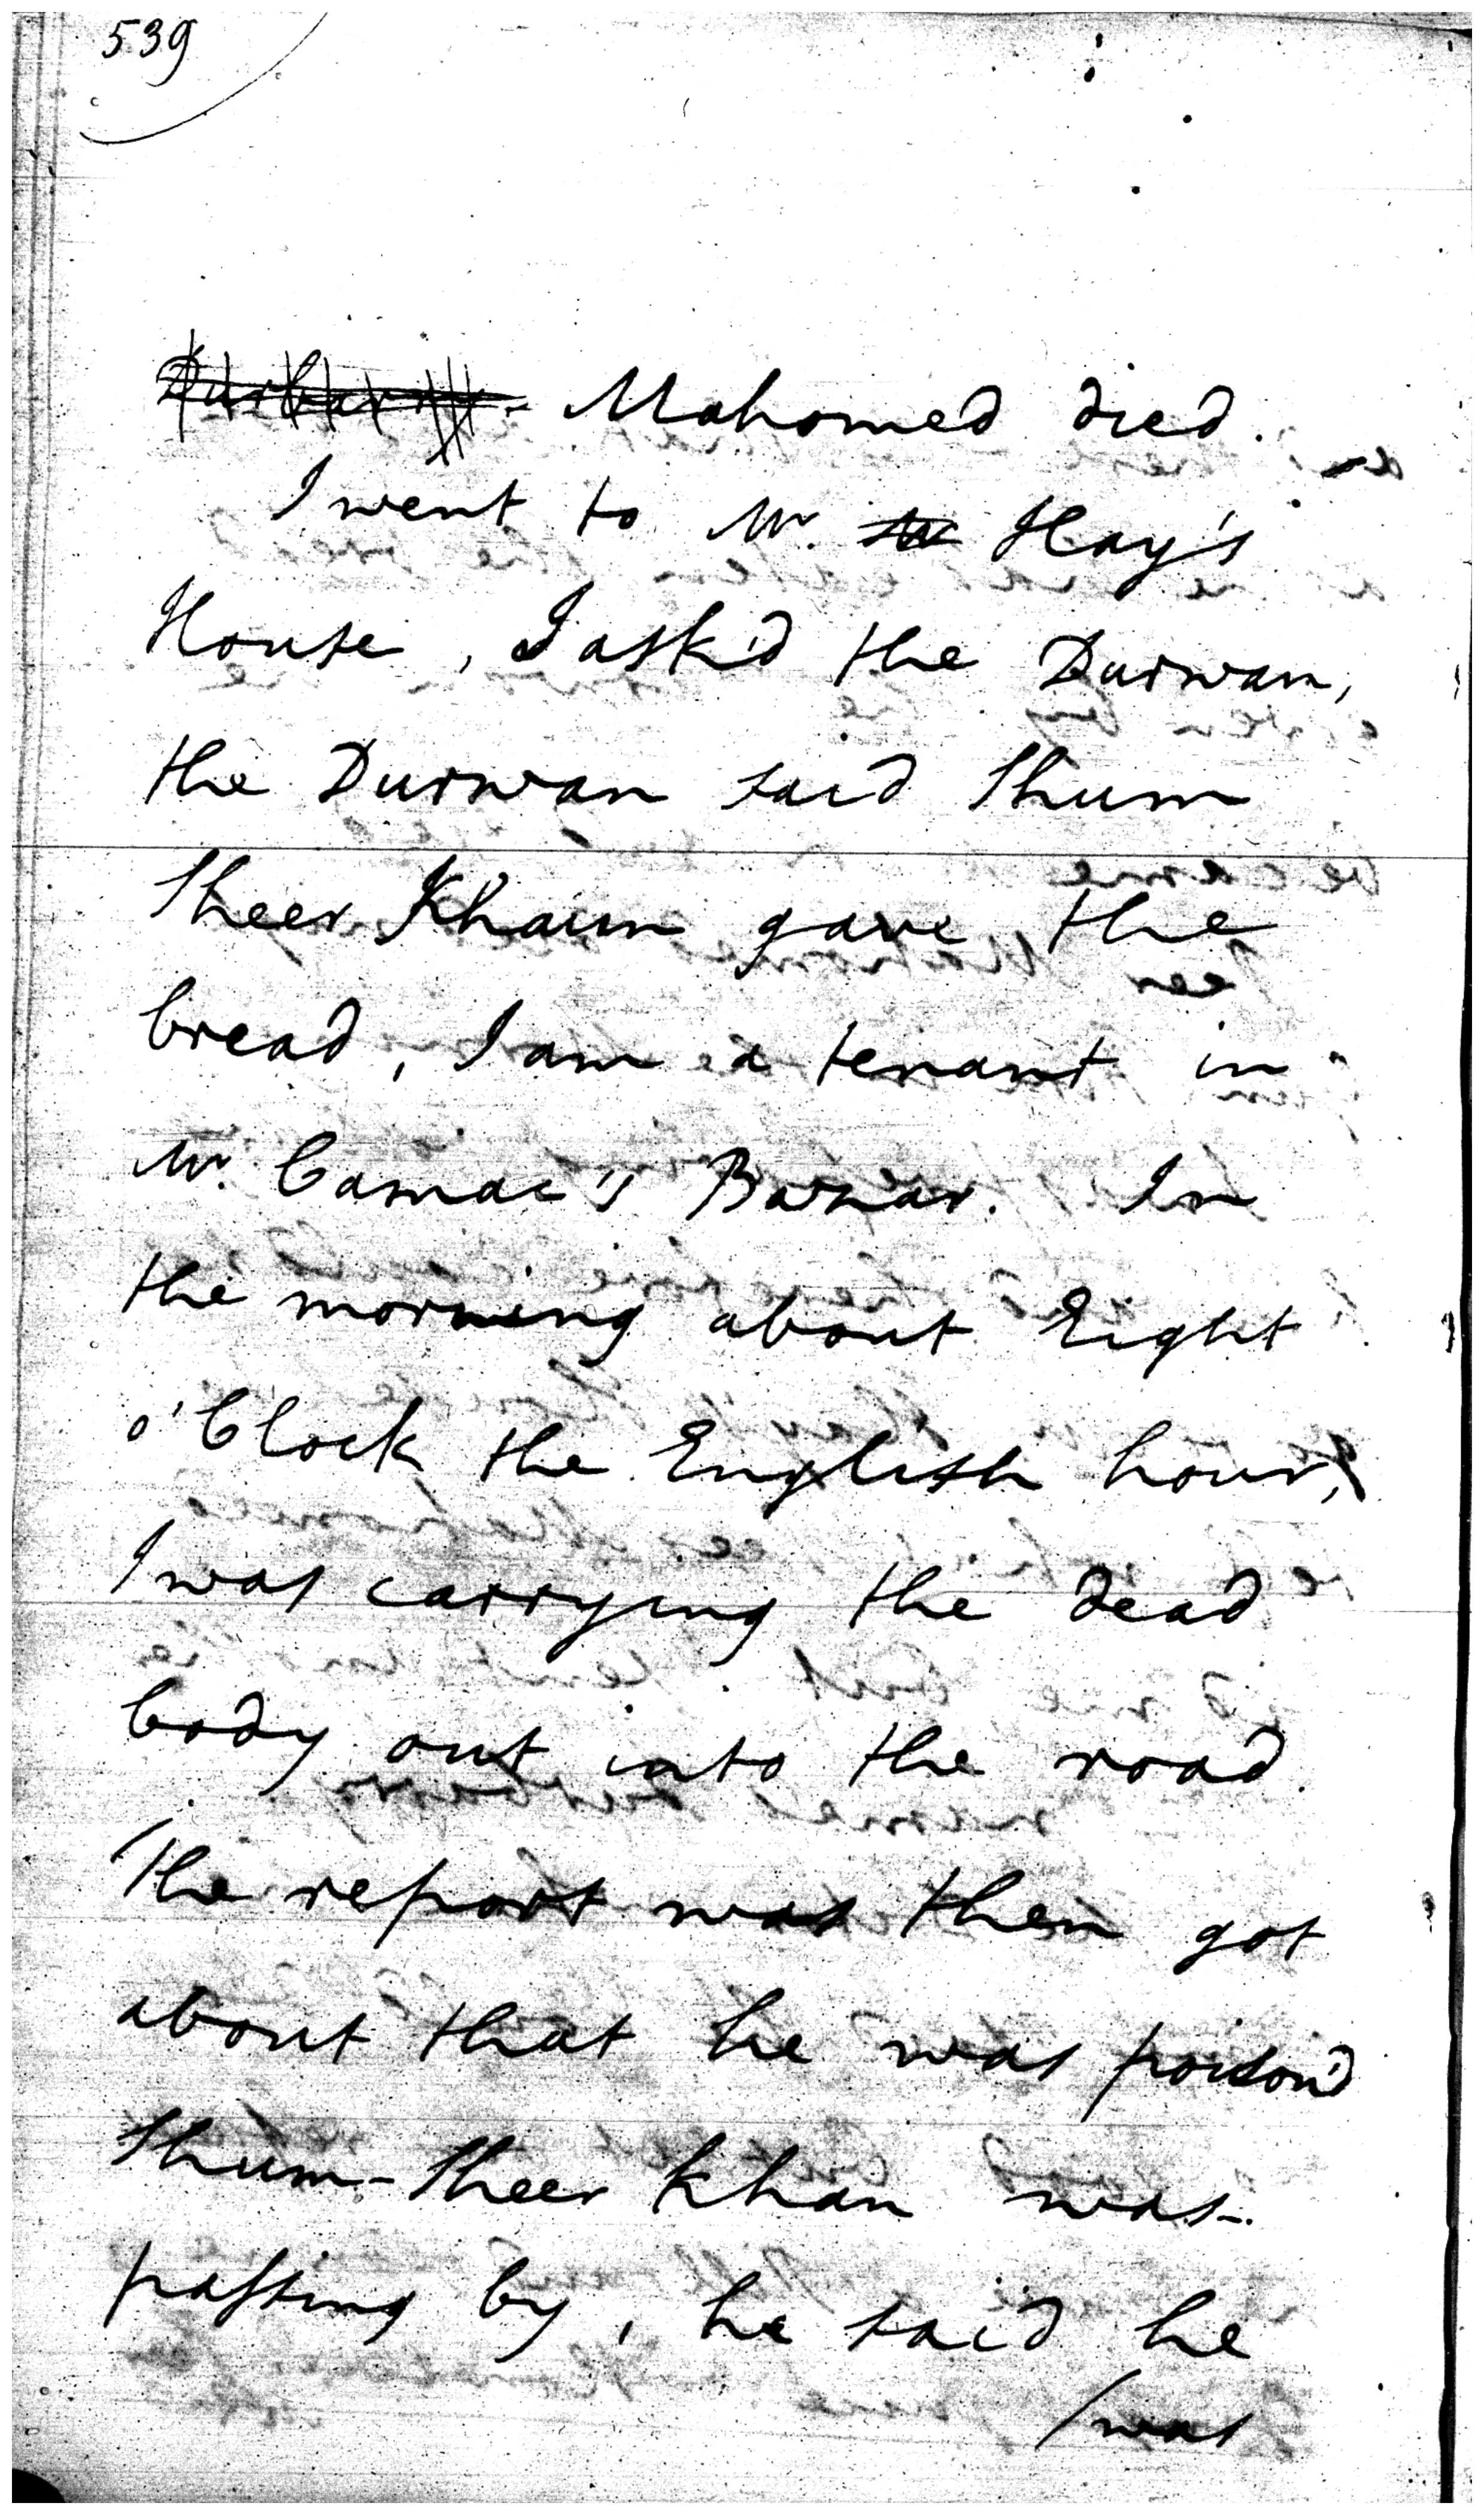 539
Mahomed died.
I went to Mr. Hay's
House, I ask'd the Durwan,
the Durwan said Shum
Sheer Khaun gave the
bread, I am a tenant in
Mr. Camac's Bazar. In
the morning about Eight
o'Clock the English hour,
I was carrying the dead
body out into the road.
The report was then got
about that he was poison'd
Shum-Sheer Khan was
passing by, he said he
/was